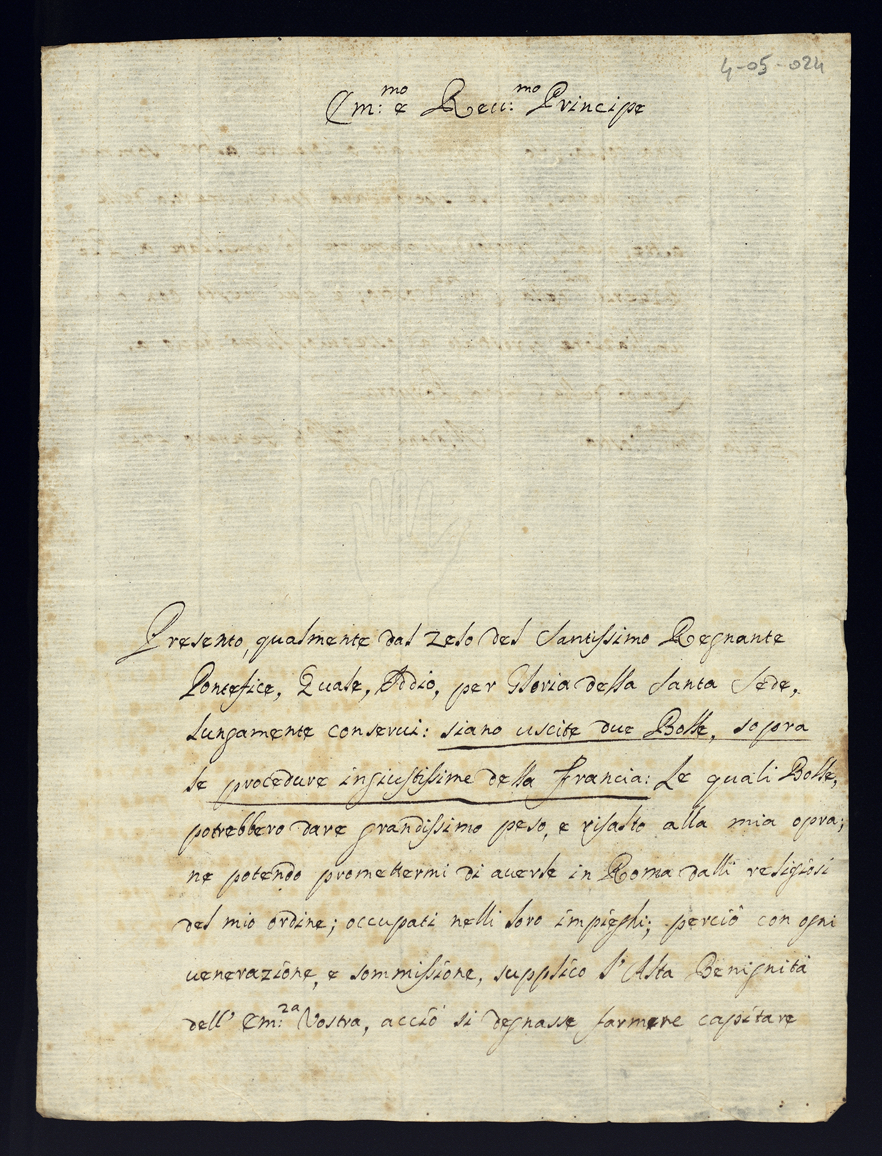 4-05-024
Em:mo e Reu:mo Principe
Presento, qualmente dal zelo del Santissimo Regnante
Pontefice, Quale, Iddio, per Gloria della Santa Sede,
lungamente conserui: siano uscite due Bolle, sopra
le procedure ingiustissime della Francia: Le quali Bolle,
potrebbero dare grandissimo peso, e risalto alla mia opra;
ne potendo promettermi di auerle in Roma dalli religiosi
del mio ordine; occupati nelli loro impieghi; perciò con ogni
uenerazione, e sommissione, supplico l'Alta Benignità
dell' Em:za Vostra, acciò si degnasse farmene capitare